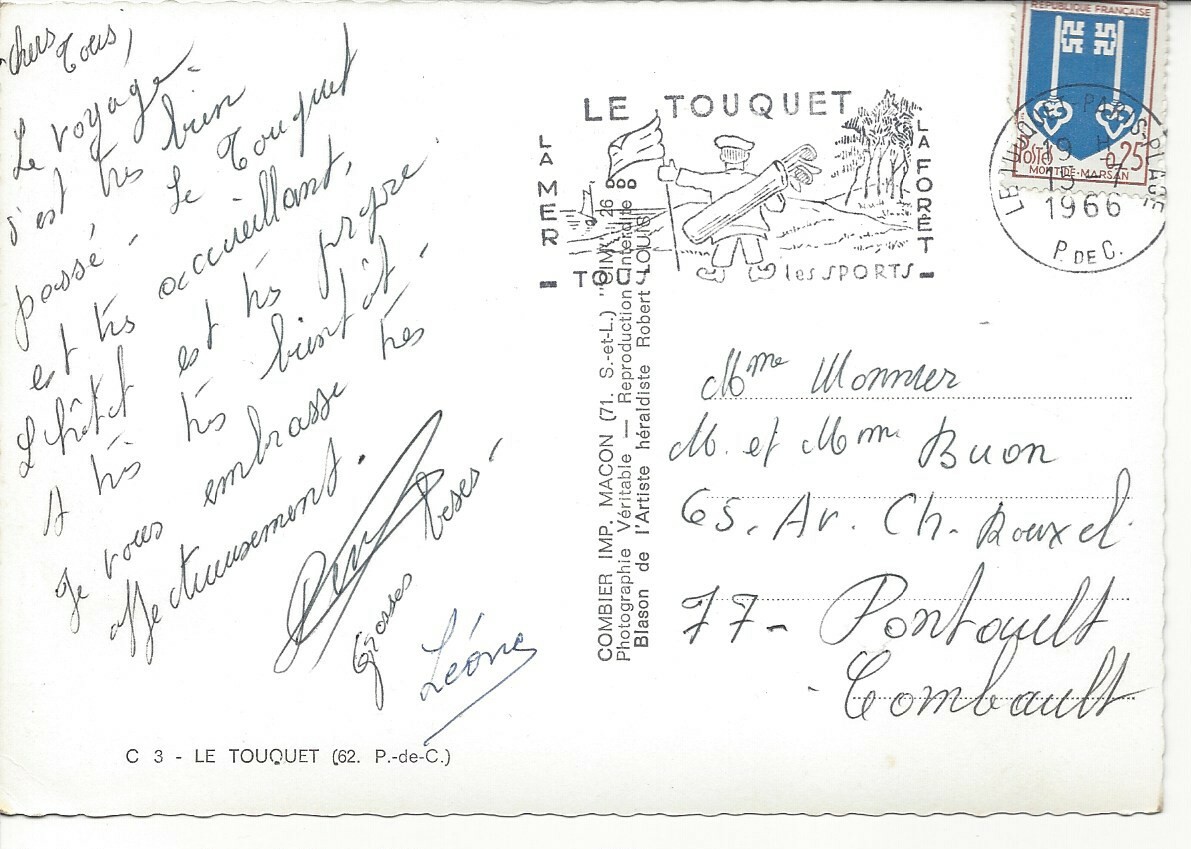 Chers Tous,
Le voyage
s'est très bien
passé. Le Touquet
est très accueillant,
L'hôtel est très propre.
A très très bientôt.
Je vous embrasse très
affectueusement.
Grosses
beses
Léone
C 3 - LE TOUQUET (62. P.-de-C.)
COMBIER IMP. MACON (71. S.-et-L.) "CIM"
Photographie Véritable — Reproduction Interdite
Blason de l'Artiste héraldiste Robert LOUIS
LE TOUQUET
LA MER
LA FORET
TOUS les SPORTS
REPUBLIQUE FRANÇAISE
POSTES 0,25
MONT-DE-MARSAN
LE TOUQUET-PARIS-PLAGE
19 H
1966
P. DE C.
Mme Monnier
M. et Mme Buon
65. Av. Ch. Rouxel
77 - Pontault
Combault